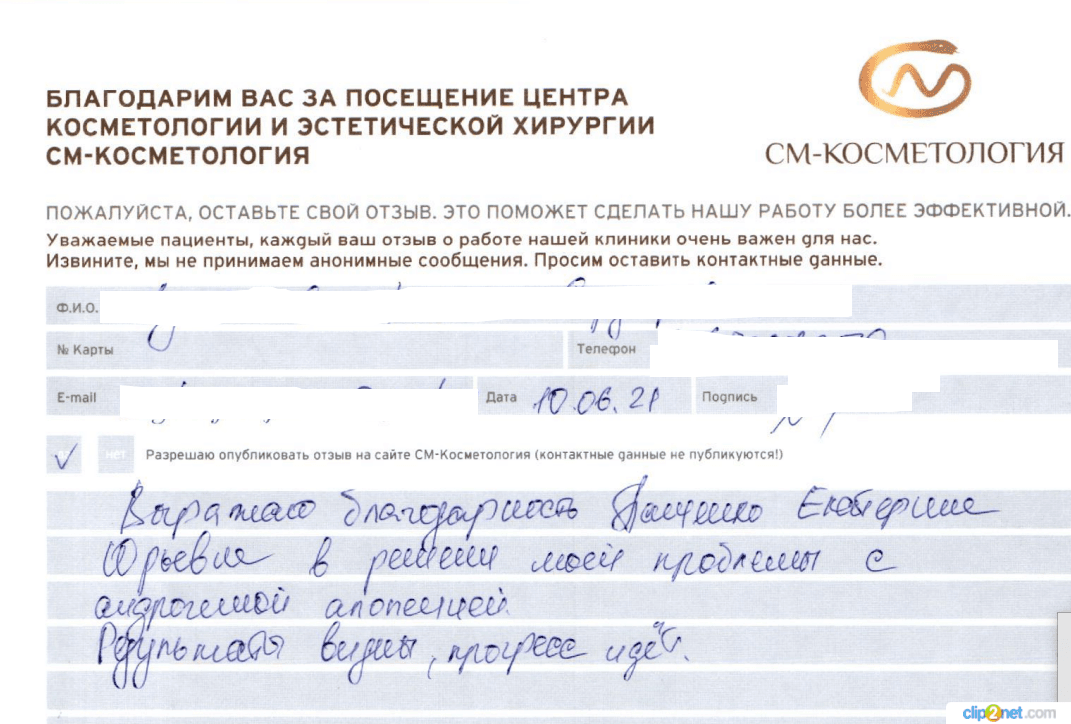 БЛАГОДАРИМ ВАС ЗА ПОСЕЩЕНИЕ ЦЕНТРА
КОСМЕТОЛОГИИ И ЭСТЕТИЧЕСКОЙ ХИРУРГИИ
СМ-КОСМЕТОЛОГИЯ
СМ-КОСМЕТОЛОГИЯ
ПОЖАЛУЙСТА, ОСТАВЬТЕ СВОЙ ОТЗЫВ. ЭТО ПОМОЖЕТ СДЕЛАТЬ НАШУ РАБОТУ БОЛЕЕ ЭФФЕКТИВНОЙ.
Уважаемые пациенты, каждый ваш отзыв о работе нашей клиники очень важен для нас.
Извините, мы не принимаем анонимные сообщения. Просим оставить контактные данные.
Ф.И.О.
№ Карты Телефон
E-mail Дата 10.06.21 Подпись
нет Разрешаю опубликовать отзыв на сайте СМ-Косметология (контактные данные не публикуются!)
Выражаю благодарность Панченко Екатерине
Юрьевне в решении моей проблемы с
андрогенной алопецией.
Результаты видны, прогресс идёт.
clip2net.com